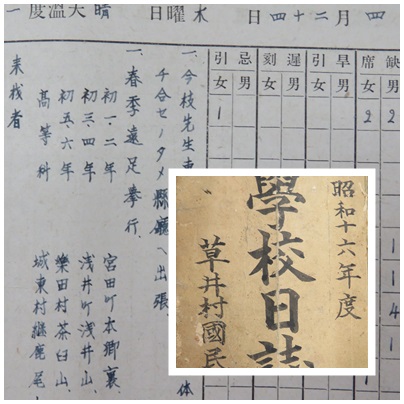 四月二十四日 木曜日 晴 天溫度 一
缺席 早引 遲刻 忌引
男 女 男 女 男 女 男 女
2 2 1
1
1
4
1
一、今枝先生
チ合セノタメ縣廳へ出張
体
一、春季遠足擧行、
初一、二年 宮田町本郷裏、
初三、四年 浅井町浅井山、
初五、六年 樂田村茶臼山、
高等科 城東村継鹿尾
来校者
昭和十六年度
學校日誌
草井村國民